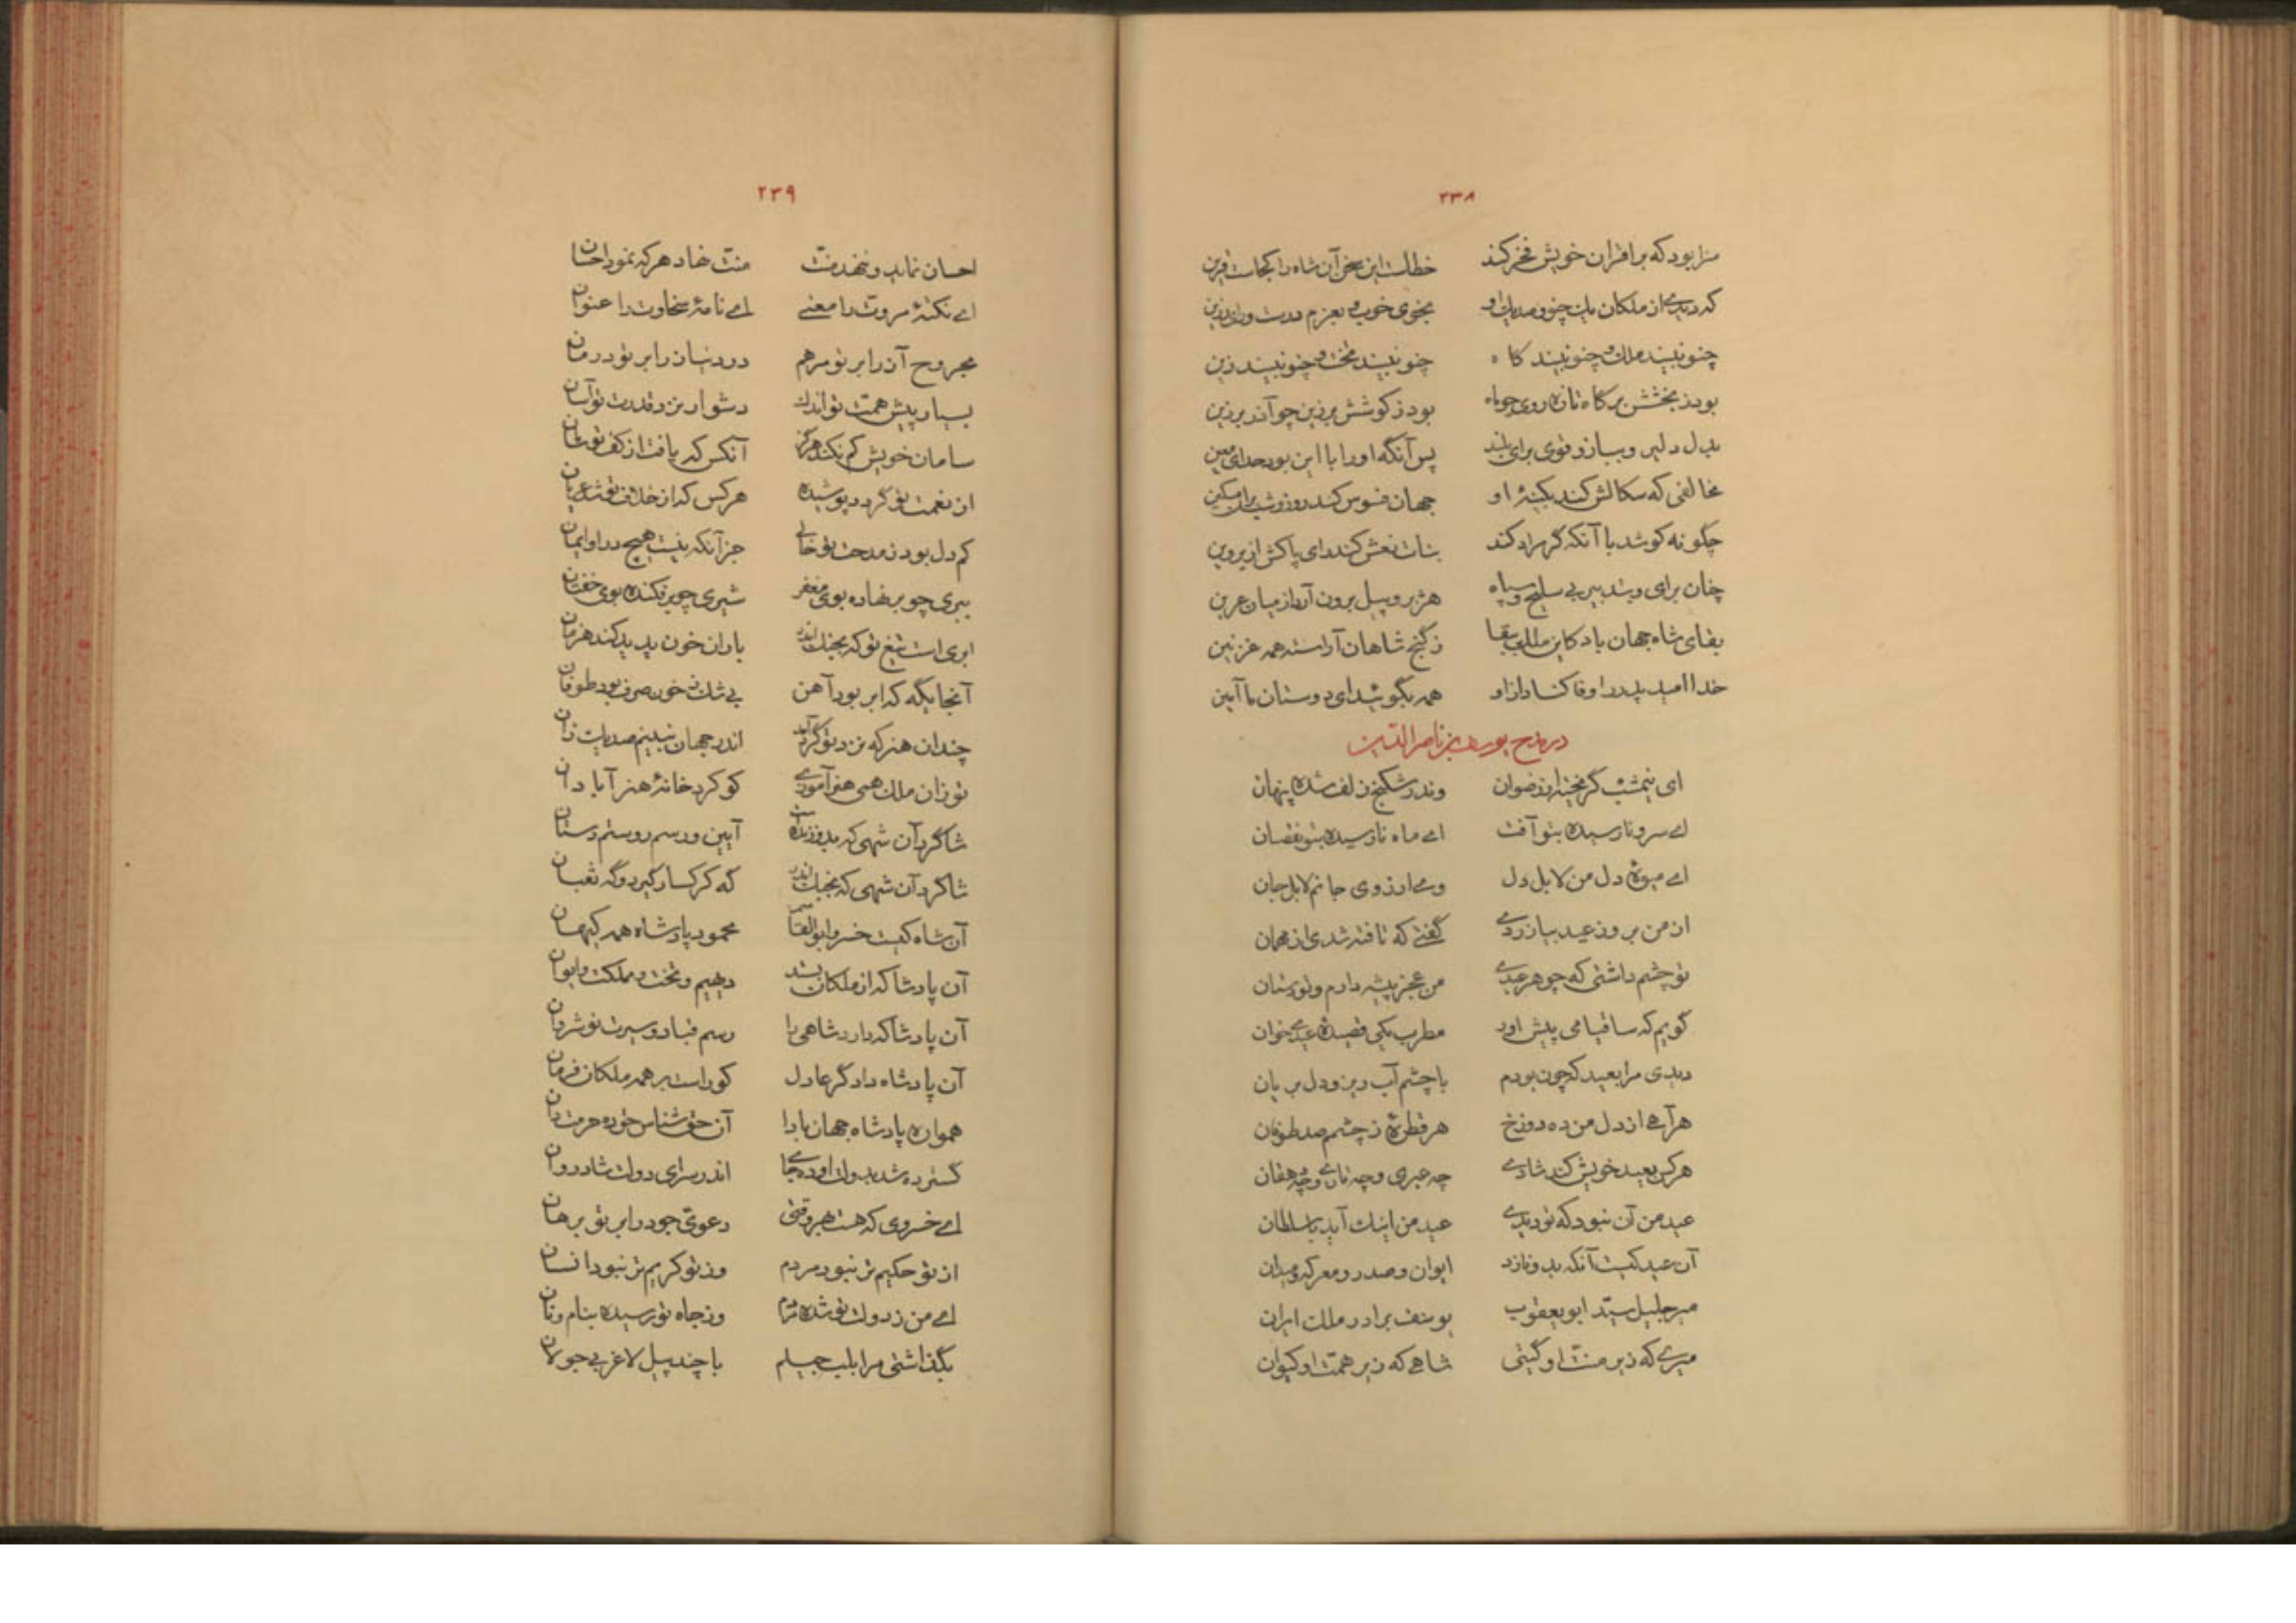 ۲۳۸
سزا بود که بر اقران خویش فخر کند خطاست این سخن آن شاه را کجاست قرین
که دیدی از ملکان یک چنو و صد یک او بخوی خوب و بعزم درست و رای رزین
چنو نبیند ملک و چنو نبیند گاه چنو نبیند تخت و چنو نبیند زین
بود ز بخشش بر گاه تازه روی چو ماه بود ز کوشش بر زین چو آذر برزین
بدل دلیر و ببازو قوی برای بلند پس آنگه او را با این بود خدای معین
مخالفی که سکالش کند بکینهٔ او جهان فسوس کند روز و شب بران مسکین
چگونه کوشد با آنکه گر مراد کند بنات نعش کند رای پاکش از پروین
چنان برای و بتدبیر بی سلیح و سپاه هژبر و پیل برون آرد از میان عرین
بقای شاه جهان باد کاین ملک ببقا ز گنج شاهان آراسته همه غزنین
خدا امید پدر را وفا کناد از او همه بگوئید ای دوستان ما آمین
در مدح یوسف بن ناصرالدین
ای نیمشب گریخته از رضوان وندر شکنج زلف شده پنهان
اے سرو نارسیده بتو آفت اے ماه نارسیده بتو نقصان
اے میوهٔ دل من لا بل دل وے آرزوی جانم لا بل جان
از من بروز عید بیازردے گفتے که تافته شدی از مهمان
تو چشم داشتی که چو هر عیدے من عجز پیشه دارم و تو دستان
گویم که ساقیا می پیش آور مطرب یکی قصیدهٔ عیدے خوان
دیدی مرا بعید که چون بودم با چشم آب ریز و دل بریان
هر آهے از دل من ده دوزخ هر قطرهٔ ز چشمم صد طوفان
هر کس بعید خویش کند شادے چه عبری و چه تازے و چه دهقان
عید من آن نبود که تو دیدے عید من اینک آید با سلطان
آن عید کیست آنکه بدو نازد ایوان و صدر و معرکه و میدان
میر جلیل سیّد ابو یعقوب یوسف برادر ملک ایران
میرے که زیر منّت او گیتی شاهے که زیر همّت او کیوان
۲۳۹
احسان نماید و ننهد منّت منّت نهاد هر که نمود احسان
اے نکتهٔ مروّت را معنے اے نامهٔ سخاوت را عنوان
مجروح آز را بر تو مرهم درد نیاز را بر تو درمان
بسیار پیش همّت تو اندک دشوار نزد قدرت تو آسان
سامان خویش گم نکند هرگز آنکس که یافت از کف تو سامان
از نعمت تو گردد پوشیده هر کس که از خلاف تو شد عریان
کم دل بود ز مدحت تو خالے جز آنکه نیست هیچ در او ایمان
ببری چو بر نهاده بوی مغفر شیری چو بر فکنده بوی خفتان
ابری است تیغ تو که بجنگ اندر باران خون پدید کند هزمان
آنجایگه که ابر بود آهن بے شک ز خون صرف بود طوفان
چندان هنر که نزد تو گرد آید اندر جهان نبینم صد یک زان
تو زان ملک همی هنر آموزے کو کرد خانهٔ هنر آبادان
شاگرد آن شهی که بدو زنده است آیین و رسم روستم دستان
شاگرد آن شهی که بجنگ اندر گه کرکسار گیرد و گه ثعبان
آن شاه کیست خسرو ابوالقاسم محمود پادشاه همه کیهان
آن پادشا که از ملکان بستد دیهیم و تخت و مملکت و ایوان
آن پادشا که دارد شاهی را رسم قباد و سیرت نوشروان
آن پادشاه دادگر عادل کو راست بر همه ملکان فرمان
همواره پادشاه جهان بادا آن حق شناس حق ده حرمت دان
گسترده شد بدولت او ده جاے اندر سرای دولت شادروان
اے خسروی که هست بهر وقتی دعویّ جود را بر تو برهان
از تو حکیم تر نبود مردم وز تو کریم تر نبود انسان
اے من ز دولت تو شده مردم وز جاه تو رسیده بنام و نان
بگذاشتی مرا بلب جیلم با چند پیل لاغر بے جولان